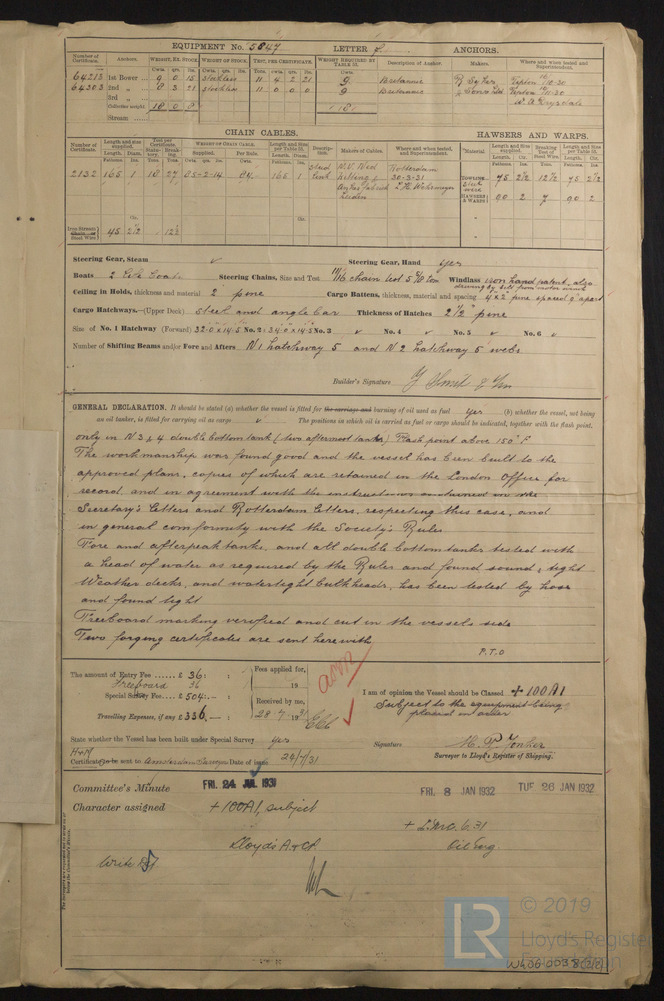 EQUIPMENT No. 5847 LETTER f. ANCHORS.
Number of Certificate. Anchors. WEIGHT, EX. STOCK. WEIGHT OF STOCK. TEST, PER CERTIFICATE. WEIGHT REQUIRED BY TABLE 31. Description of Anchor. Makers. Where and when tested and Superintendent.
Cwts. qrs. lbs. Cwts. qrs. lbs. Tons. cwts. qrs. lbs. Cwts.
64213 1st Bower 9 0 15 stockless 11 4 2 21 9 Britannic
64303 2nd 8 3 21 stockless 11 0 0 0 9 Britannic
3rd
Collective weight 18 0 8 18
Stream
CHAIN CABLES. HAWSERS AND WARPS.
Number of Certificate. Length and size supplied. Test per Certificate. WEIGHT OF CHAIN CABLE. Length and Size per Table 31. Description. Makers of Cables. Where and when tested, and Superintendent. Material. Length and Size supplied. Breaking Test of Steel Wire. Length and Size per Table 31.
2132 165 1 18 27 165 1 Stud Link Rotterdam
30-3-31
TOWLING Steel wire 75 2½ 12½ 75 2½
HAWSERS & WARPS 90 2 7 90 2
45 2½ 12½
Steering Gear, Steam Steering Gear, Hand yes
Boats 2 Life boats Steering Chains, Size and Test 11/16 chain test 5 Windlass iron hand patent, also
Ceiling in Holds, thickness and material 2" pine Cargo Battens, thickness, material and spacing 4 x 2 pine spaced 9" apart
Cargo Hatchways.—(Upper Deck) steel and angle bar Thickness of Hatches 2½" pine
Size of No. 1 Hatchway (Forward) 32.0 x 14.5 No. 2 34.0 x 14.5 No. 3 No. 4 No. 5 No. 6
Number of Shifting Beams and/or Fore and Afters N1 hatchway 5 and N2 hatchway 5 webs
Builder's Signature
GENERAL DECLARATION. It should be stated (a) whether the vessel is fitted for the carriage and burning of oil used as fuel yes (b) whether the vessel, not being
an oil tanker, is fitted for carrying oil as cargo The positions in which oil is carried as fuel or cargo should be indicated, together with the flash point.
only in N 3 & 4 double bottom tank (two aftermost tanks) Flash point above 150° F
The workmanship was found good and the vessel has been built to the
approved plans, copies of which are retained in the London Office for
record, and in agreement with the instructions contained in the
Secretary's Letters and Rotterdam Letters, respecting this case, and
in general comformity with the Society's Rules
Fore and afterpeaktanks, and all double bottomtanks tested with
a head of water as required by the Rules and found sound & tight
Weather decks, and watertight bulkheads, has been tested by hose
and found tight
Freeboard marking verified and cut in the vessels side
Two forging certificates are sent herewith
P.T.O
The amount of Entry Fee ...... £ 36: Fees applied for,
Freeboard 36 19
Special Survey Fee.... £ 504:— Received by me, I am of opinion the Vessel should be Classed + 100A1
Subject to the equipment being
placed in order
Travelling Expenses, if any £ 336.— 28 7 1931
State whether the Vessel has been built under Special Survey yes
Signature H. P. Jonker
Surveyor to Lloyd's Register of Shipping.
Certificate to be sent to Amsterdam Surveyors Date of issue 24/7/31
Committee's Minute FRI. 24 JUL 1931 FRI. 8 JAN 1932 TUE 26 JAN 1932
Character assigned + 100A1, subject
+ LMC. 6.31
Lloyd's A & CP Oil Eng.
Write
© 2019
LR
Lloyd's Register
Foundation
W406-0038(2/2)